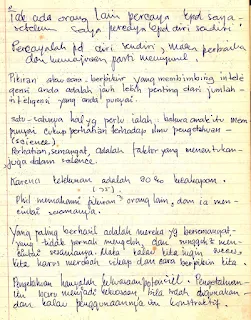 Tak ada orang lain percaya kpd saya
sebelum saya percaya kpd diri sendiri.
Percayalah pd diri sendiri, maka perbaikan
dan kemajuan pasti menyusul.
Pikiran atau cara-berpikir yang membimbing intele
gensi anda adalah jauh lebih penting dari jumlah-
intelegensi yang anda punyai.
satu-satunya hal yg perlu ialah: bahwa anak itu mem
punyai cukup perhatian terhadap ilmu pengetahuan
(science).
Perhatian, semangat, adalah faktor yang menentukan-
juga dalam science.
Karena tekunan adalah 90% kecakapan.
Phil memahami pikiran orang lain, dan ia men-
cintai sesamanya.
Yang paling berhasil adalah mereka yg bersemangat-
yang tidak pernah mengeluh dan sungguh men-
cintai sesamanya. Maka kalau kita ingin sukses,
kita harus merobah sikap dan cara berpikir kita.
Pengetahuan hanyalah kekuasaan potensiil. Pengetahuan
ini baru menjadi kekuasaan bila telah digunakan
dan kalau penggunaannya itu konstruktif.